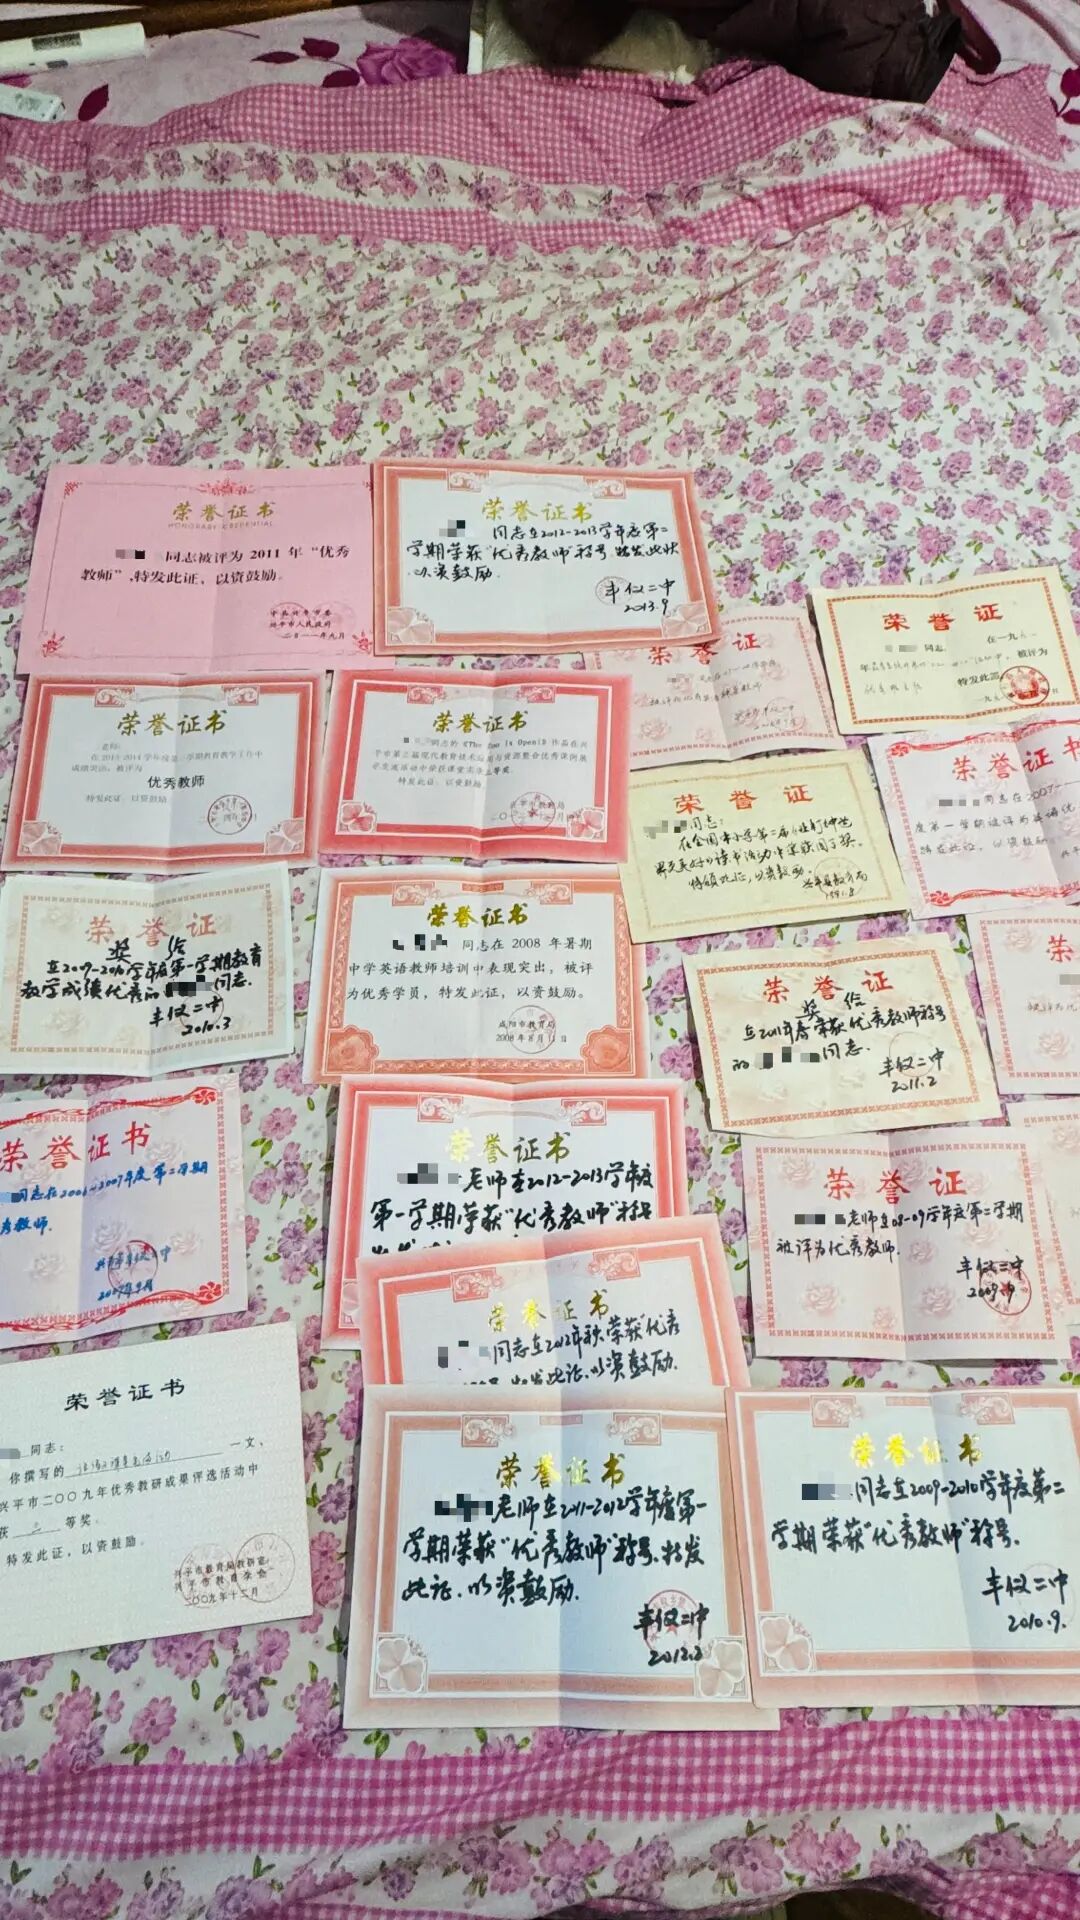 荣誉证书
HONORARY CREDENTIAL
同志被评为 2011 年“优秀
教师”,特发此证，以资鼓励。
中共兴平市委
兴平市人民政府
二〇一一年九月
荣誉证书
同志在2012-2013学年度第二
学期荣获“优秀教师”称号 特发此状
以资鼓励.
丰仪二中
2013.9
荣誉证
荣誉证
同志
在一九
被评为
特发此证
荣誉证书
老师:
在2013-2014学年度第一学期教育教学工作中
成绩突出，被评为
优秀教师
特发此证，以资鼓励
荣誉证书
同志的
作品在兴
平市第三届现代教育技术应用与资源整合优秀课例展
特发此证，以资鼓励
兴平市教育局
荣誉证
同志:
特颁此证,以资鼓励.
兴平县教育局
1991.8
荣誉证书
同志在2007-
度第一学期被评为
特发此证，以资鼓励
荣誉证
奖给
在2009-2010学年度第一学期教育
教学成绩优秀的
同志.
丰仪二中
2010.3
荣誉证书
同志在 2008 年暑期
中学英语教师培训中表现突出，被评
为优秀学员，特发此证，以资鼓励。
咸阳市教育局
2008年8月11日
荣誉证
奖给
在2011年春荣获优秀教师称号
的
同志.
丰仪二中
2011.2
荣
荣誉证书
同志在2006-2007年度第二学期
秀教师.
兴平市丰仪二中
荣誉证书
老师在2012-2013学年度
第一学期荣获“优秀教师”称号
荣誉证
老师在08-09学年度第二学期
被评为优秀教师.
丰仪二中
2009.9
荣誉证书
同志在2012年秋荣获“优秀
特发此证.以资鼓励.
荣誉证书
同志:
你撰写的
一文、
兴平市二〇〇九年优秀教研成果评选活动中
获 三 等奖。
特发此证，以资鼓励。
兴平市教育局教研室
兴平市教育学会
二〇〇九年十二月
荣誉证书
老师在2011-2012学年度第一
学期荣获“优秀教师”称号.特发
此证.以资鼓励.
丰仪二中
2012.2
荣誉证书
同志在2009-2010学年度第二
学期荣获“优秀教师”称号.
丰仪二中
2010.9.